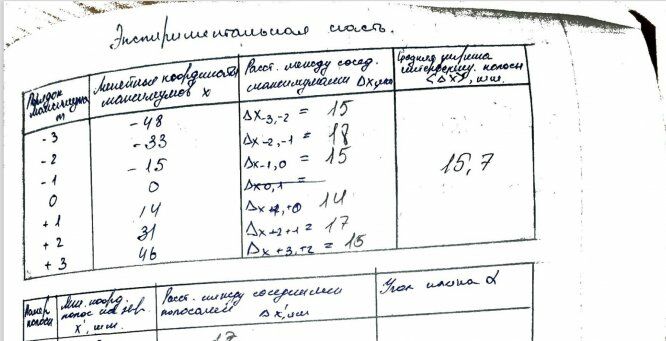 Экспериментальная часть.
Порядок максимума m
Линейные координаты максимумов x
Расст. между сосед. максимумами Δx, мм
Средняя ширина интерференц. полосы <Δx>, мм.
-3 -48 Δx-3,-2 = 15
-2 -33 Δx-2,-1 = 18
-1 -15 Δx-1,0 = 15
0 0 Δx0,1 =
+1 14 Δx+1,+0 14
+2 31 Δx+2+1 = 17
+3 46 Δx+3,+2 = 15
15,7
Номер полосы
Лин. коорд. полос x', мм.
Расст. между соседними полосами Δx', мм
Угол клина α
17